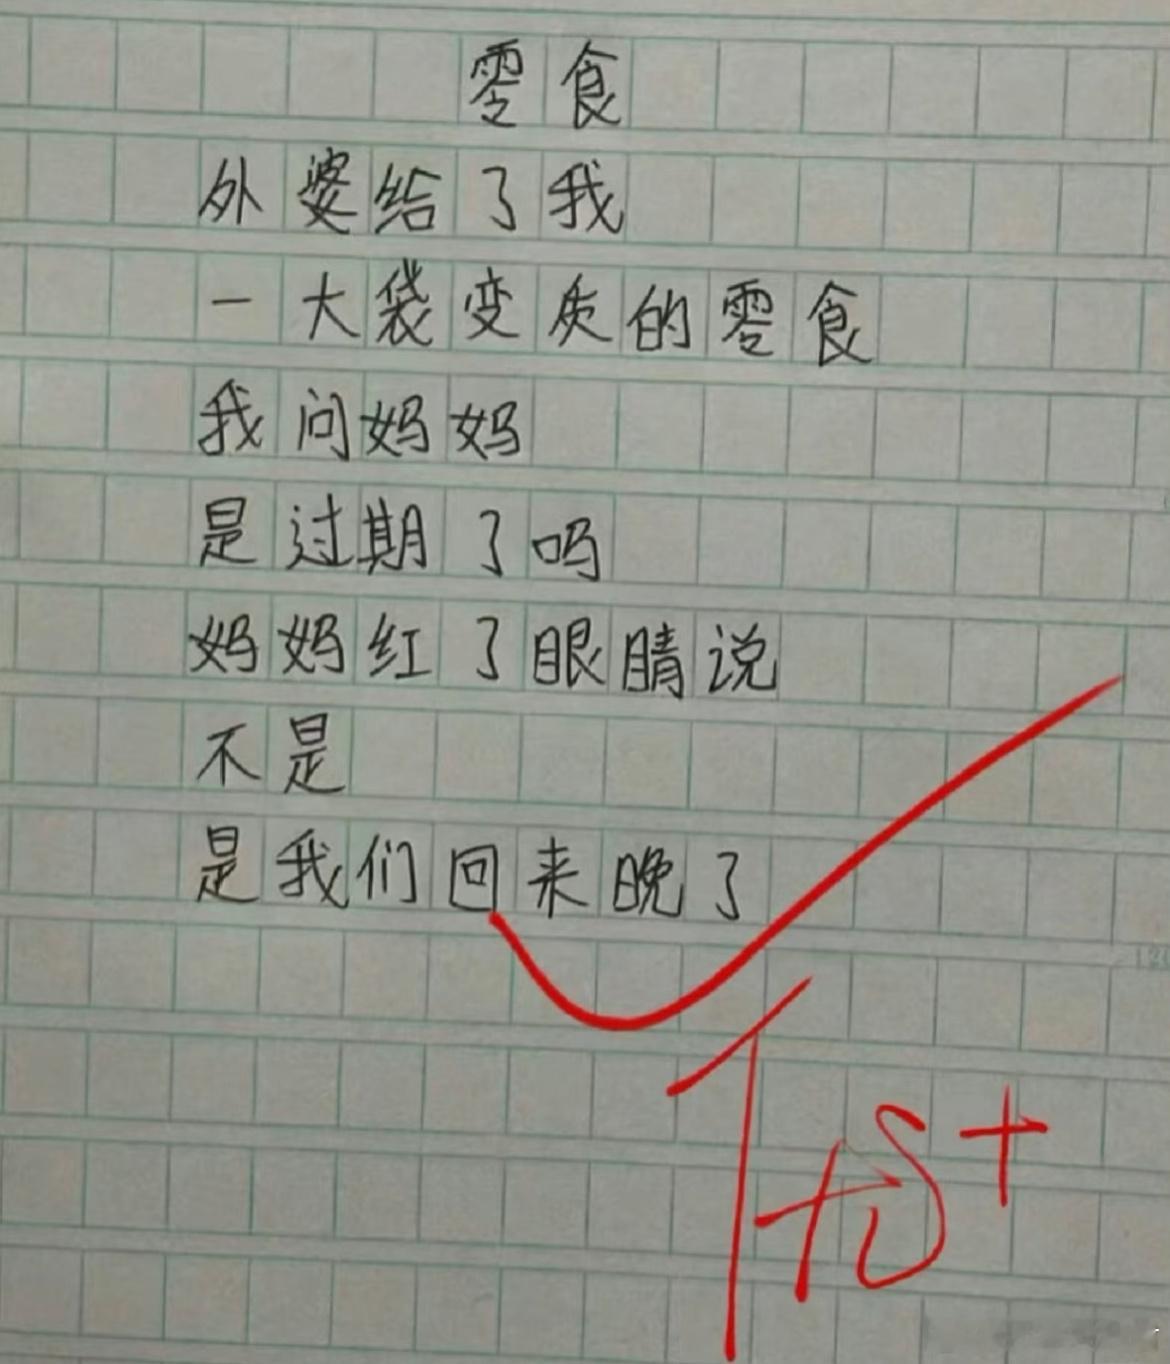 零食
外婆给了我
一大袋变质的零食
我问妈妈
是过期了吗
妈妈红了眼睛说
不是
是我们回来晚了